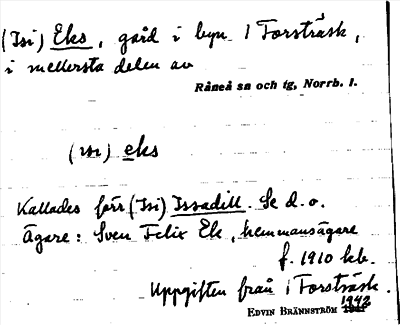 (Isi) Eks, gård i byn 1 Forsträsk,
i mellersta delen av
Råneå sn och tg, Norrb. l.
(ısı) eks
Kallades förr (Isi) Issadill. Se d.o.
Ägare: Sven Felix Ek, hemmansägare
f. 1910 hb.
Uppgiften från 1 Forsträsk.
1942
EDVIN BRÄNNSTRÖM